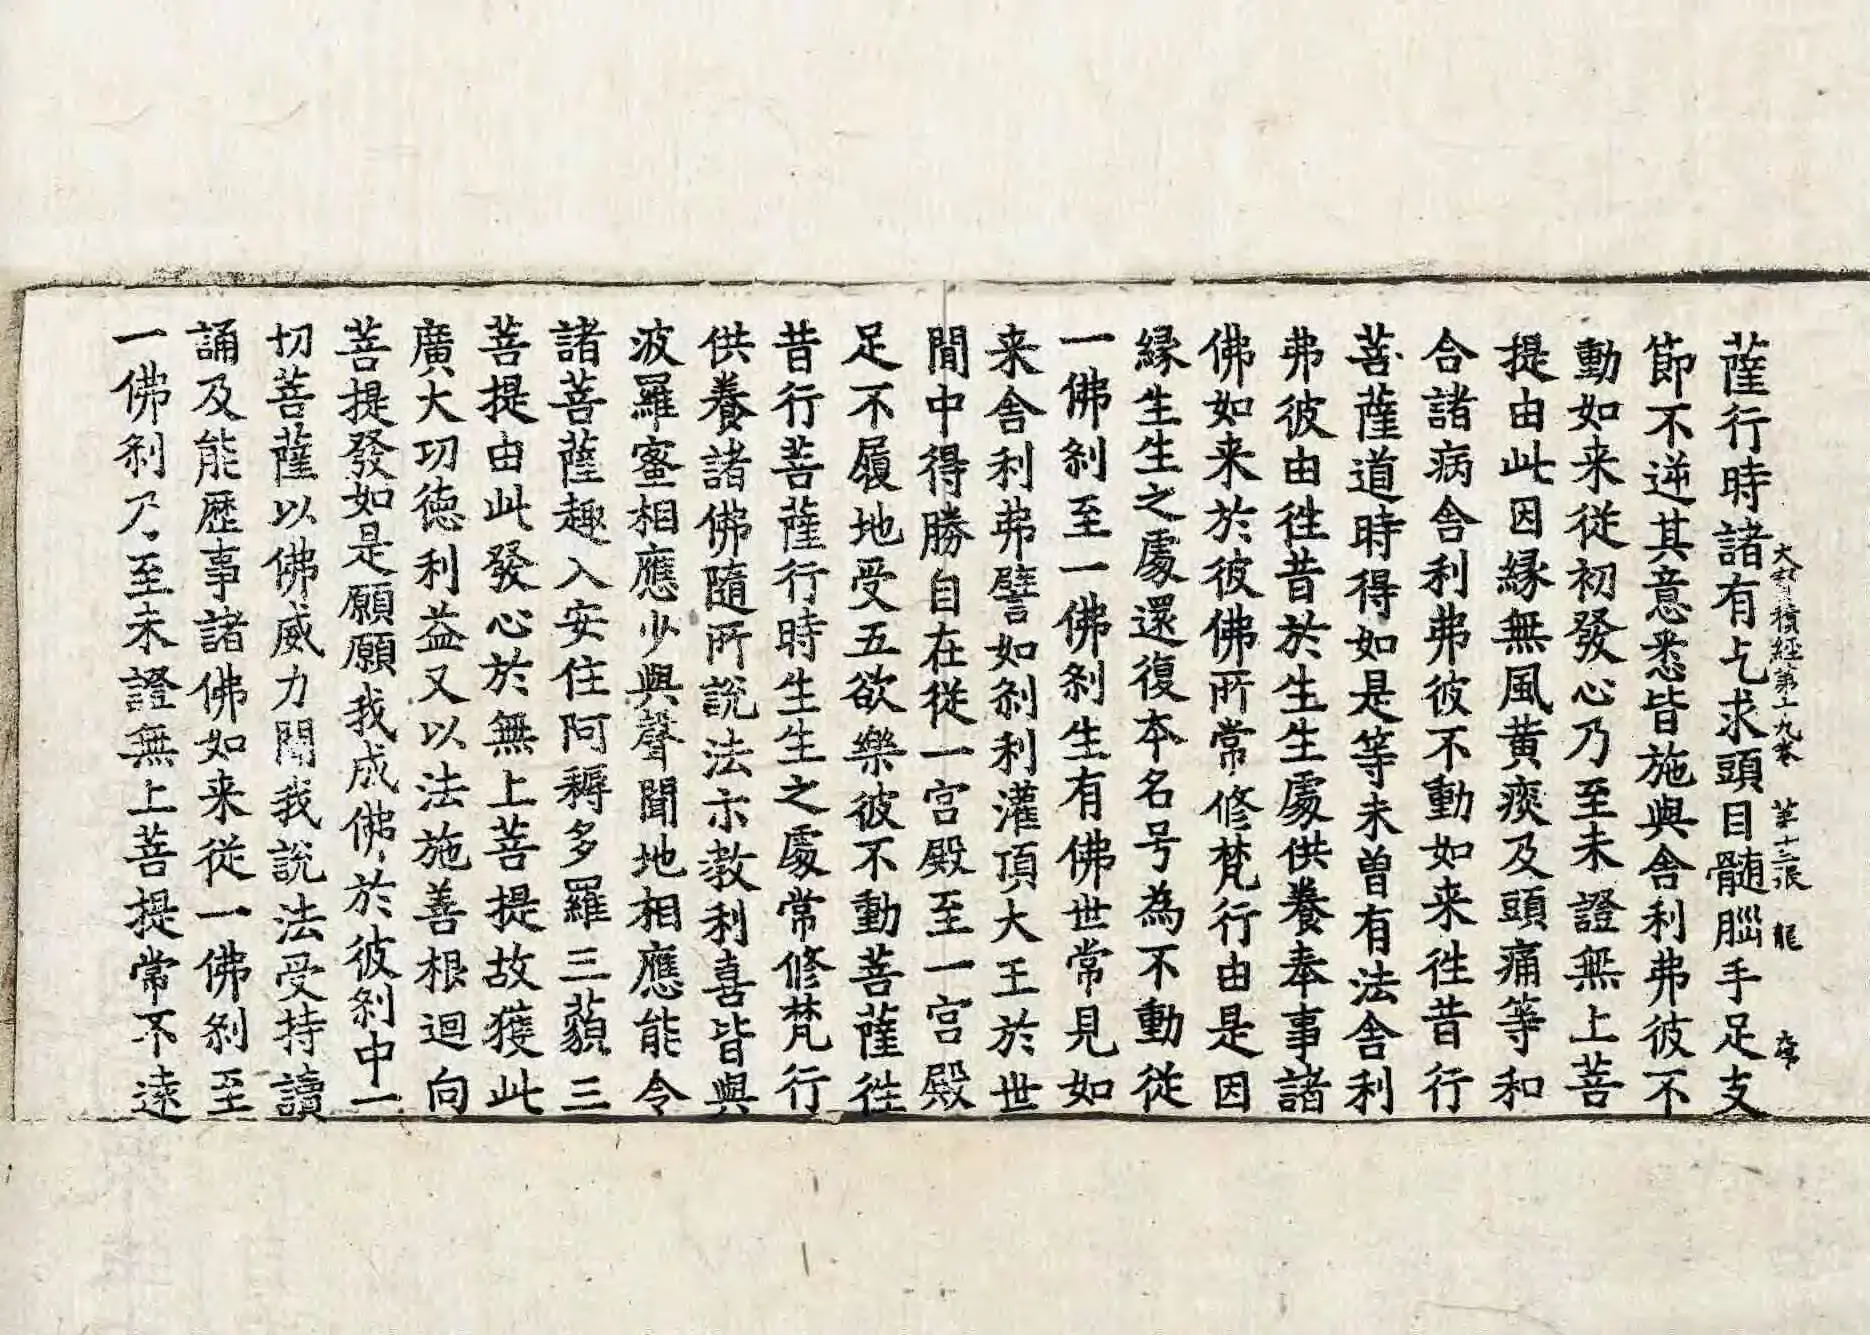 大寶積經第十九卷 第十三張 龍
薩行時諸有乞求頭目髄腦手足支
節不逆其意悉皆施與舍利弗彼不
動如来從初發心乃至未證無上菩
提由此因緣無風黄痰及頭痛等和
合諸病舍利弗彼不動如来徃昔行
菩薩道時得如是等未曽有法舍利
弗彼由徃昔於生生處供養奉事諸
佛如来於彼佛所常修梵行由是因
緣生生之處還復本名号為不動従
一佛剎至一佛剎生有佛世常見如
来舍利弗譬如剎利灌頂大王於世
間中得勝自在従一宫殿至一宫殿
足不履地受五欲樂彼不動菩薩徃
昔行菩薩行時生生之處常修梵行
供養諸佛隨所説法示教利喜皆與
波羅蜜相應少與聲聞地相應能令
諸菩薩趣入安住阿耨多羅三藐三
菩提由此發心於無上菩提故獲此
廣大功德利益又以法施善根迴向
菩提發如是願願我成佛於彼剎中一
切菩薩以佛威力聞我説法受持讀
誦及能歷事諸佛如来從一佛剎至
一佛剎乃至未證無上菩提常不遠